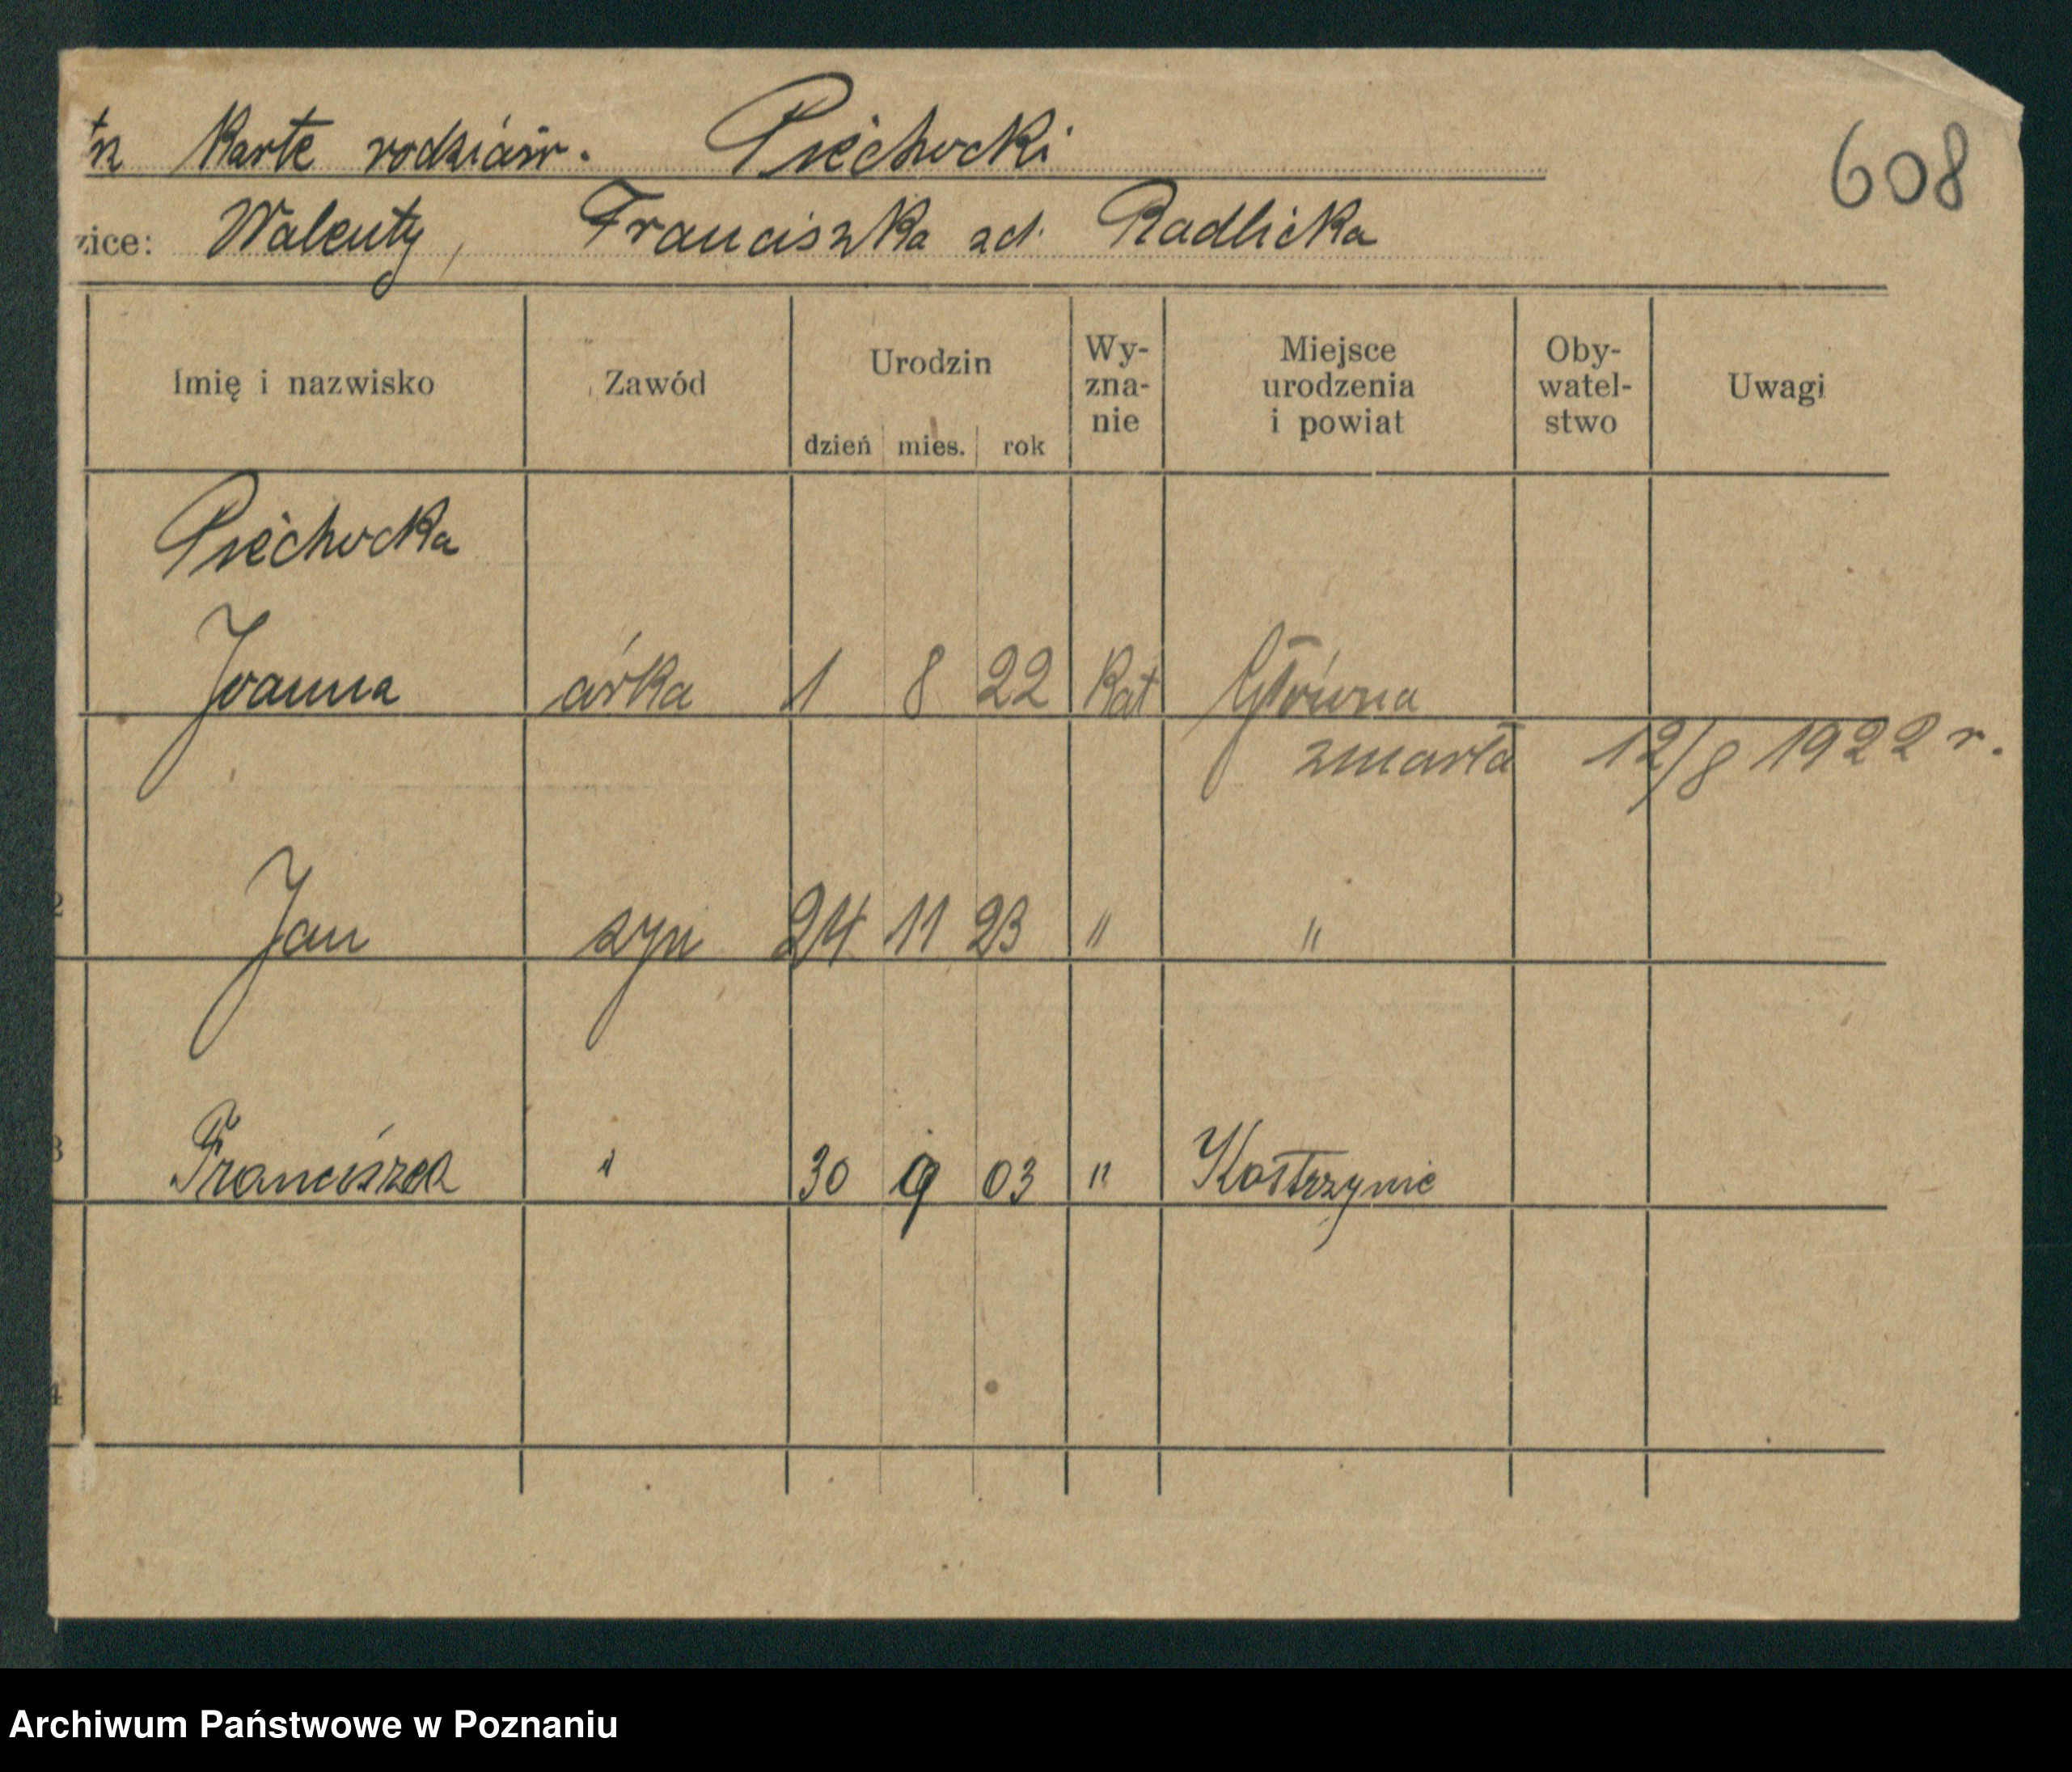 Kartę rodziców. Piechocki
608
zice: Walenty, Franciszka zd. Radlicka
Imię i nazwisko Zawód Urodzin dzień mies. rok Wy-zna-nie Miejsce urodzenia i powiat Oby-watel-stwo Uwagi
Piechocka
Joanna córka 1 8 22 Kat Główna
zmarła 12/8 1922 r.
2 Jan syn 24 11 23 " "
3 Franciszek " 30 9 03 " Kostrzynie
4
Archiwum Państwowe w Poznaniu